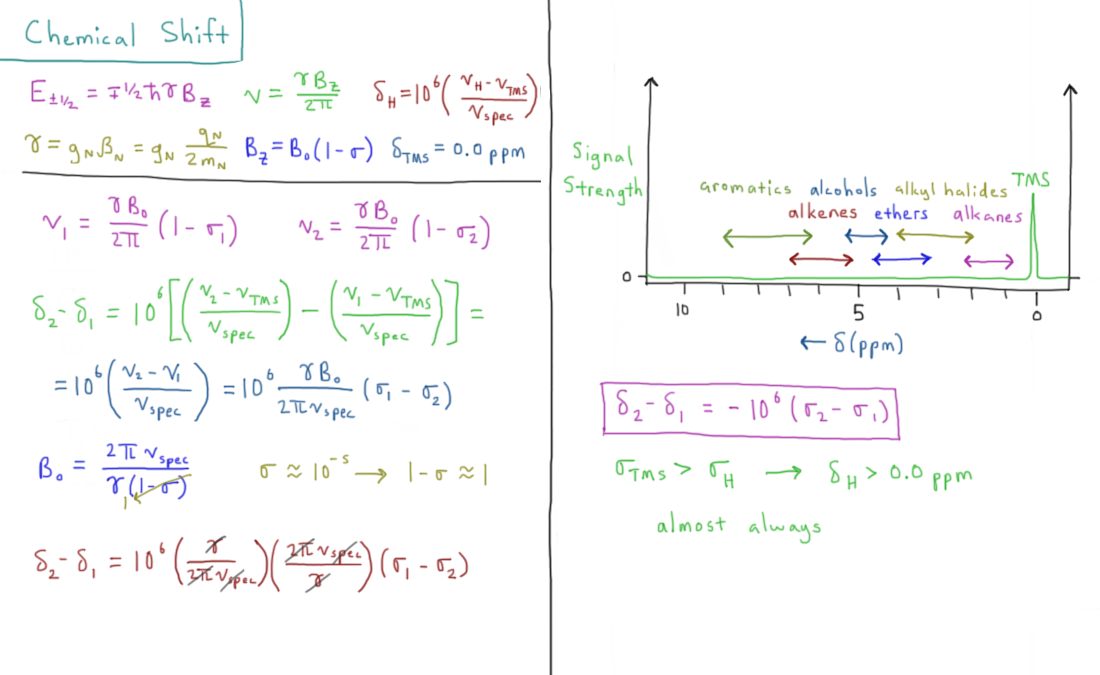 Chemical Shift
E±1/2 = ∓1/2ħγB_Z   ν = γB_Z/2π   δ_H=10⁶((ν_H-ν_TMS)/ν_spec)
γ = g_Nβ_N = g_N q_N/2m_N   B_Z=B₀(1-σ)   δ_TMS = 0.0 ppm
ν₁ = γB₀/2π (1-σ₁)   ν₂ = γB₀/2π (1-σ₂)
δ₂-δ₁ = 10⁶[((ν₂-ν_TMS)/ν_spec) - ((ν₁-ν_TMS)/ν_spec)] =
=10⁶((ν₂-ν₁)/ν_spec) = 10⁶ γB₀/2πν_spec (σ₁-σ₂)
B₀ = 2πν_spec/γ(1-σ) 1   σ ≈ 10⁻⁵ → 1-σ ≈ 1
δ₂-δ₁ = 10⁶(γ/2πν_spec)(2πν_spec/γ)(σ₁-σ₂)
Signal
Strength
aromatics alcohols alkyl halides TMS
alkenes ethers alkanes
0
10 5 0
← δ(ppm)
δ₂-δ₁ = -10⁶(σ₂-σ₁)
σ_TMS > σ_H → δ_H > 0.0 ppm
almost always